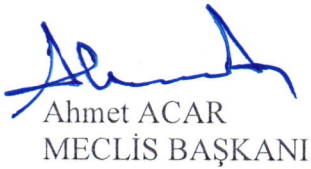 Ahmet ACAR
MECLİS BAŞKANI